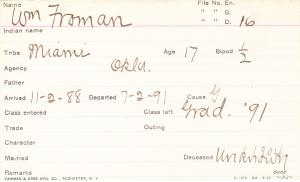 Name Wm Froman File No. En.
" " G.
" " D. 16
Indian name
Tribe Miami Age 17 Blood 1/2
Agency Okla.
Father
Arrived 11-2-88 Departed 7-2-91 Cause G
Class entered Class left Grad. '91
Trade Outing
Character
Married Deceased Unknown
Remarks over